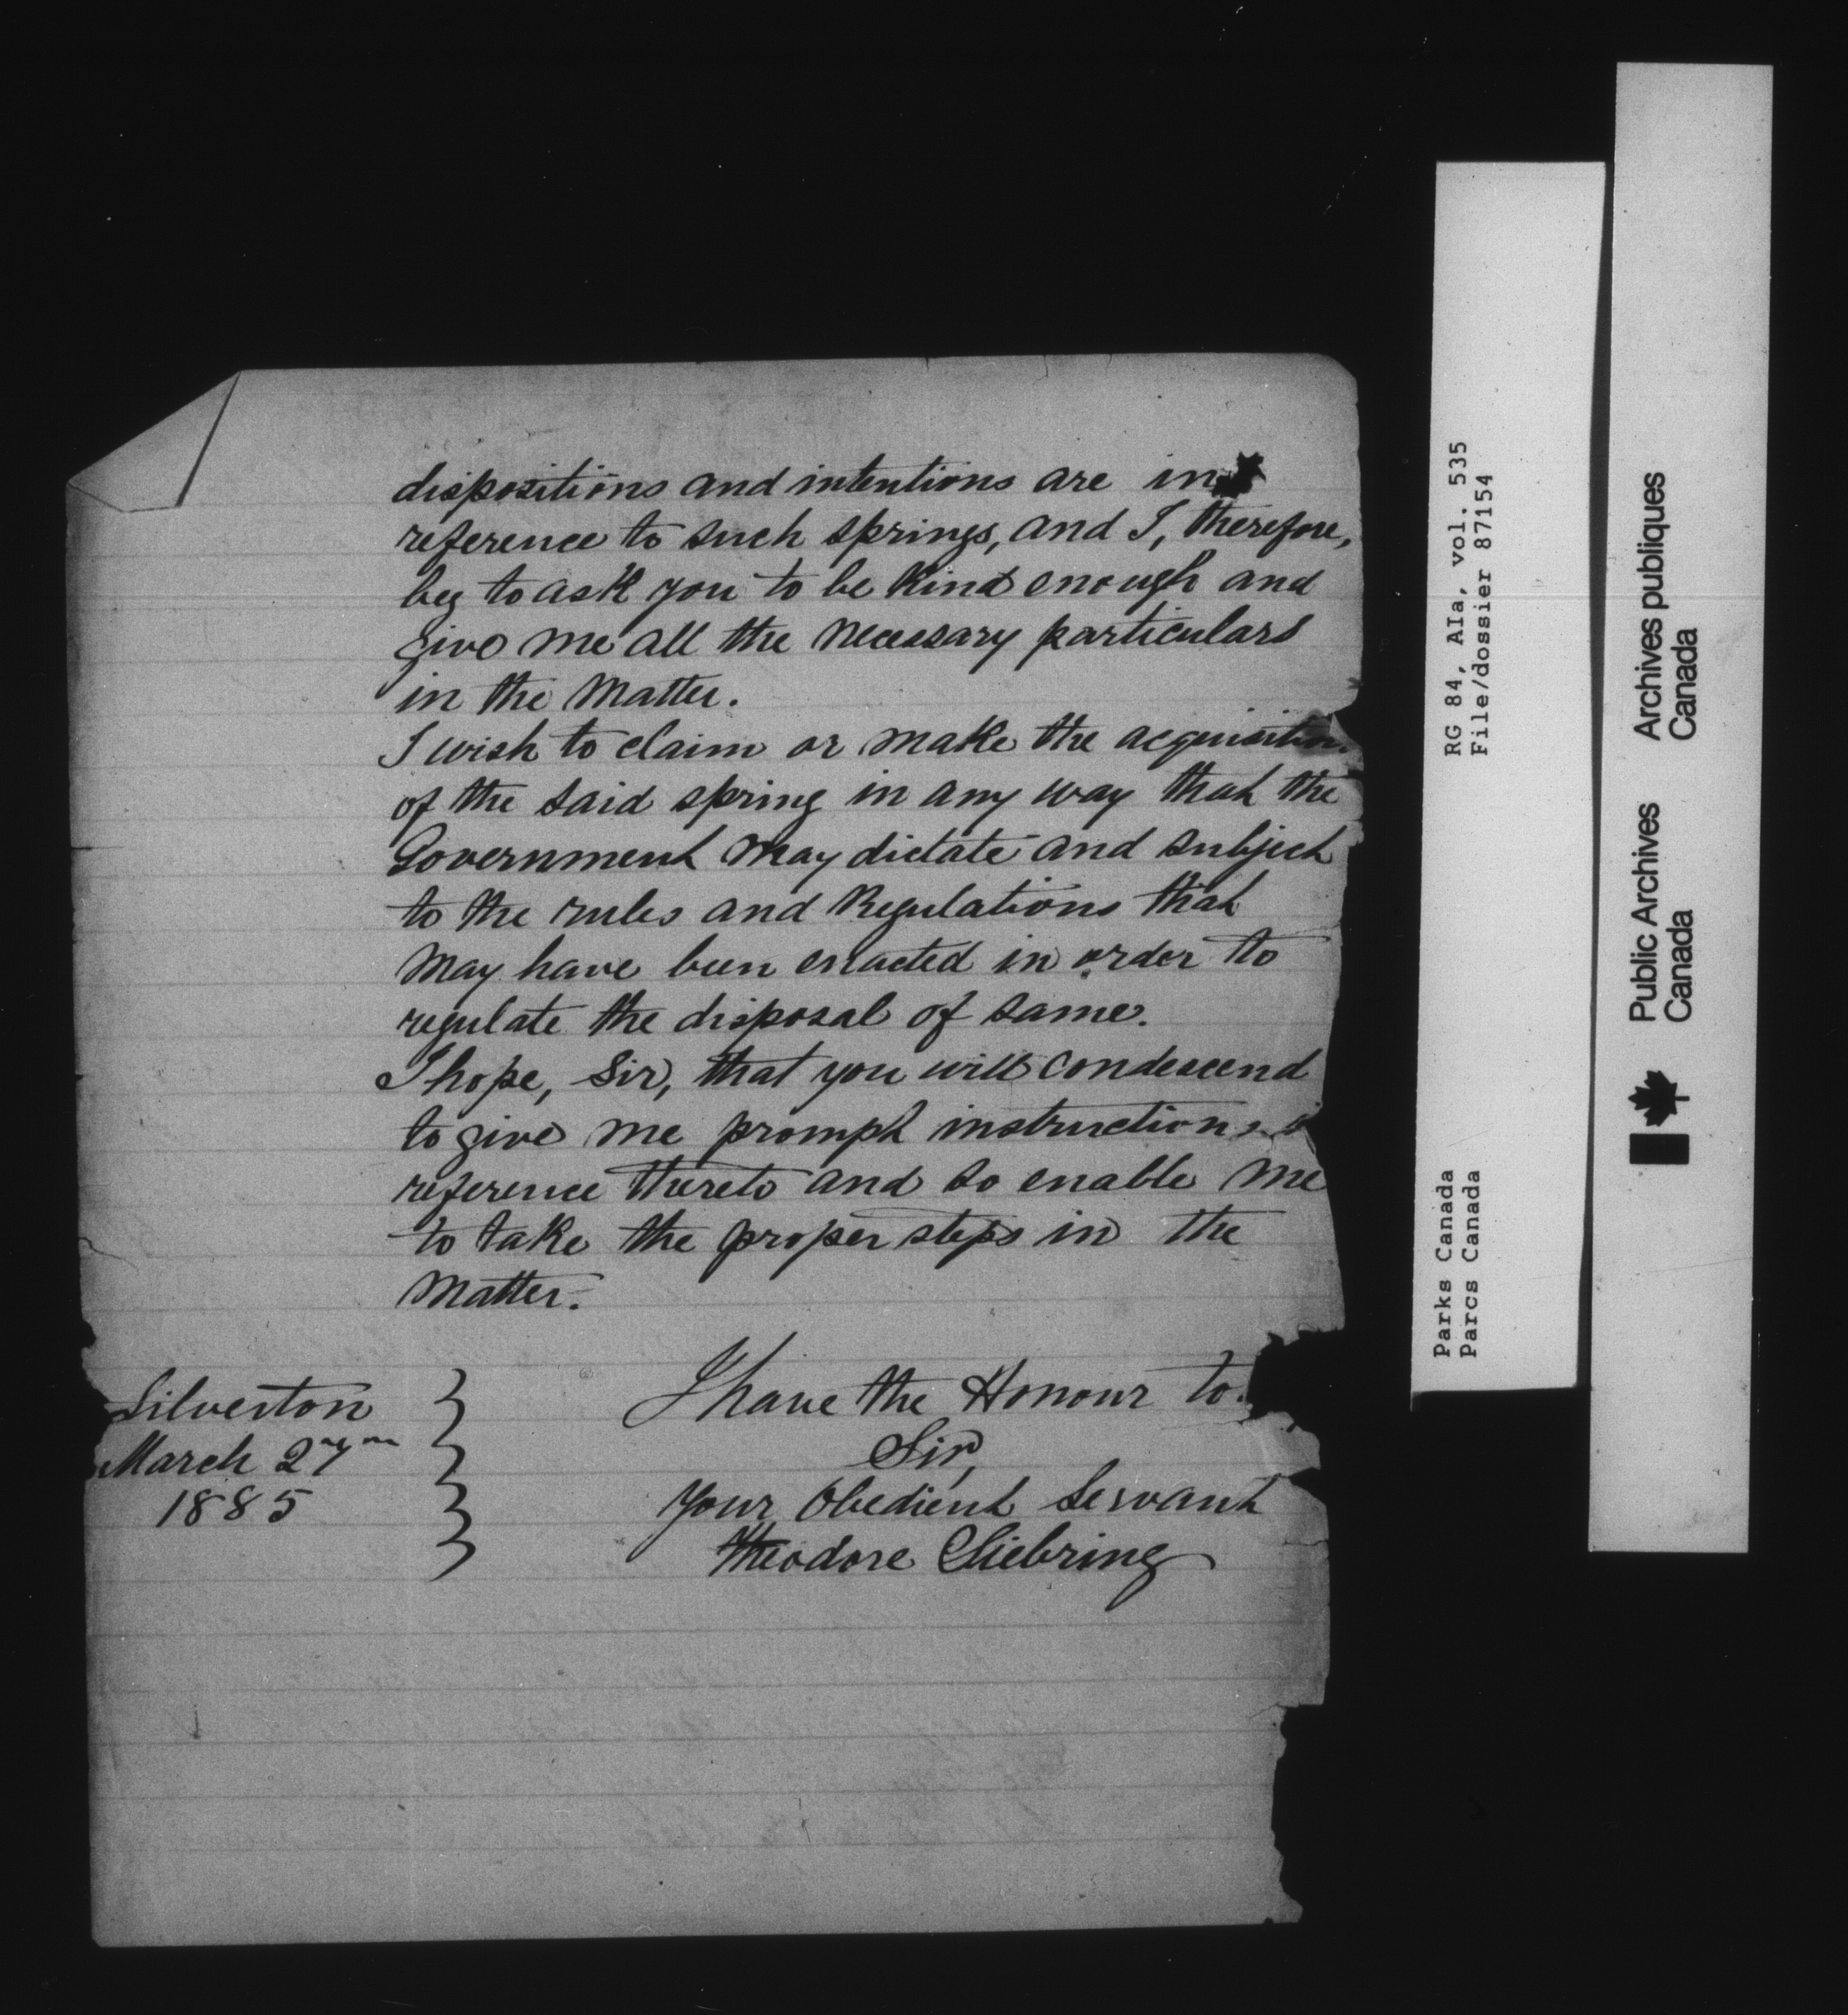 dispositions and intentions are in
reference to such springs, and I, therefore,
beg to ask you to be Kind enough and
give me all the necessary particulars
in the Matter.
I wish to claim or make the acquisition
of the said spring in any way that the
Government may dictate and subject
to the rules and Regulations that
may have been enacted in order to
regulate the disposal of same.
I hope, Sir, that you will condescend
to give me prompt instructions
reference thereto and so enable me
to take the proper steps in the
Matter.
I have the Honour to
Sir,
Your Obedient Servant
Theodore
Silverton
March 27
1885
RG 84, AIa, vol. 535
File/dossier 87154
Parks Canada
Parcs Canada
Public Archives
Canada
Archives publiques
Canada